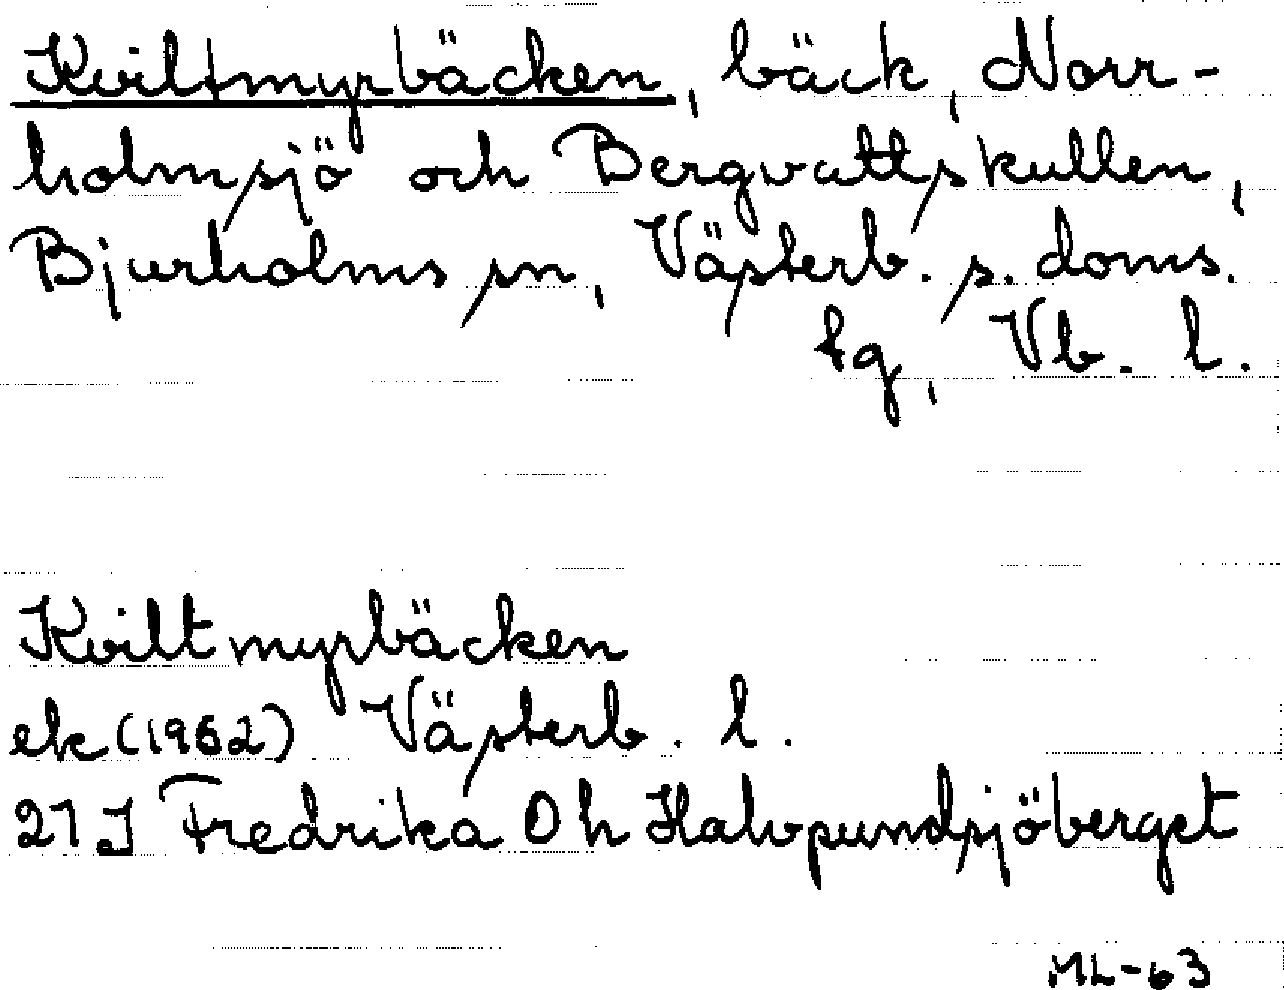 Kviltmyrbäcken, bäck, Norr-
holmsjö och Bergvattskullen,
Bjurholms sn, Västerb. s. doms.
tg, Vb. l.
Kviltmyrbäcken
ek (1962) Västerb. l.
21 J Fredrika 0 h Halvpundsjöberget
ML-63